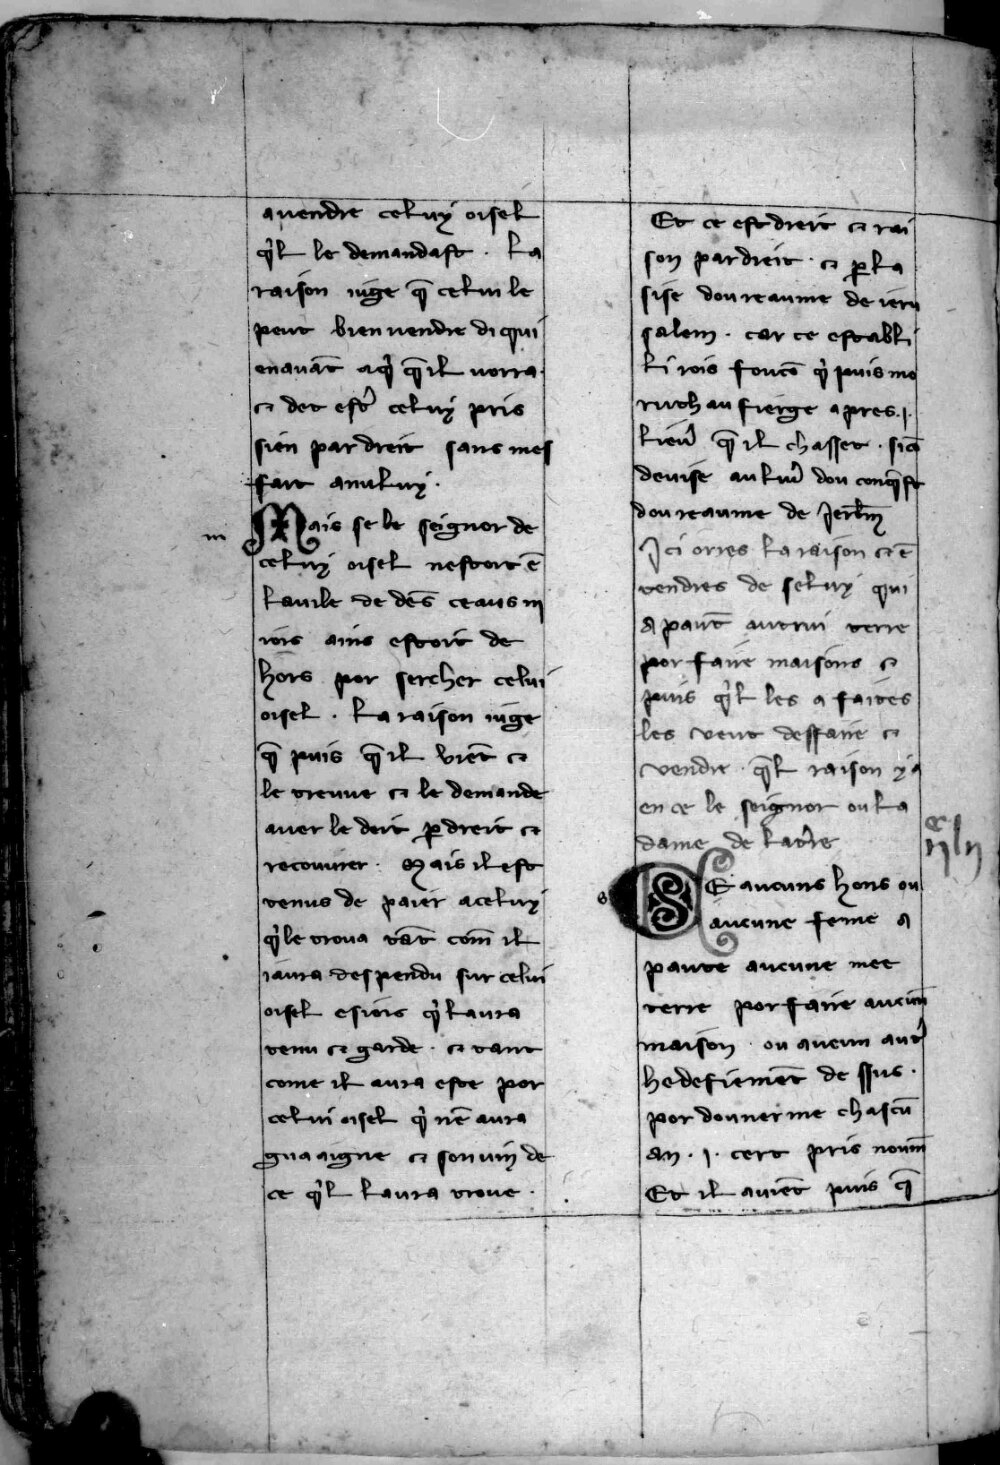 avendre celuy oisel
q̓l le demandast · la
raison iuge q̄ celui le
peut bien vendre di qui
en avāt aq̓ q̄ il vorra·
⁊ det est̓ celuy pris
sien par dreit sans mes
fait a nuluy ·
m
Mais se le seignor de
celuy oisel nestoit ē
la vile de dēs ceaus iii
iois ains estoit de
hors por sercher celui
oisel · la raison iuge
q̄ puis q̄ il viēt ⁊
le treuve ⁊ le demande
aver le deit ꝑ dreit ⁊
recouvrer · Mais il est
tenus de paier a celuy
q̓ le trova tāt com̄ il
i aura despendu sur celui
oisel es iois q̓ l aura
tenu ⁊ garde · ⁊ tant
come il aura este por
celui oisel q̓ nē aura
guaaigne ⁊ son viij de
ce q̓l l aura trove ·
Et ce est dreit ⁊ rai
son par dreit · ⁊ ꝑ la
sise dou reaume de ieru
salem · car ce establi
li rois foucō q̓ puis mo
rut hau fierge apres · i·
lievr̄ q̄ il chasset · sicō
devise au livr̄ dou conq̄st
dou reaume de Jerl̄m
Ici orres la raison ⁊ ē
tendres de seluy qui
apaut̄ autrui terre
por faire maisons ⁊
puis q̓l les a faites
les veut deffaire ⁊
vendre · q̄l raison y a
en ce le seignor ou la
dame de la t̓re
s
SE aucuns hons ou
aucune feme a
paute aucune mee
terre por faire aucun̄
maison · ou aucun aut̓
hedefiemēt de ssus ·
por donner me chascū
an · i· cert pris noum̄
Et il aviēt puis q̄